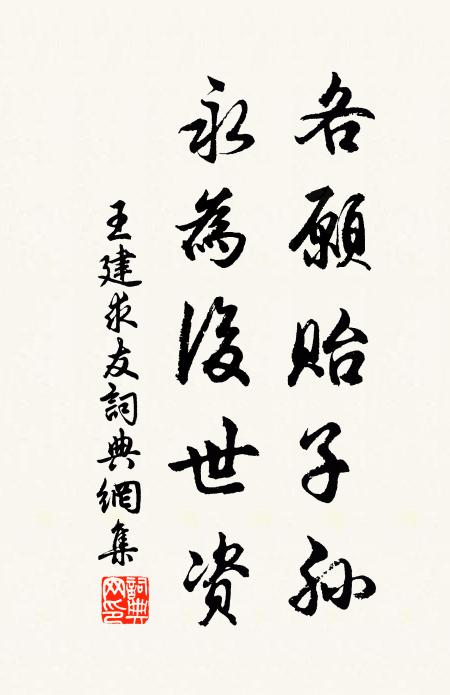 各願貽子孙
永為後世资
王建求友詞典網集
詞典網印